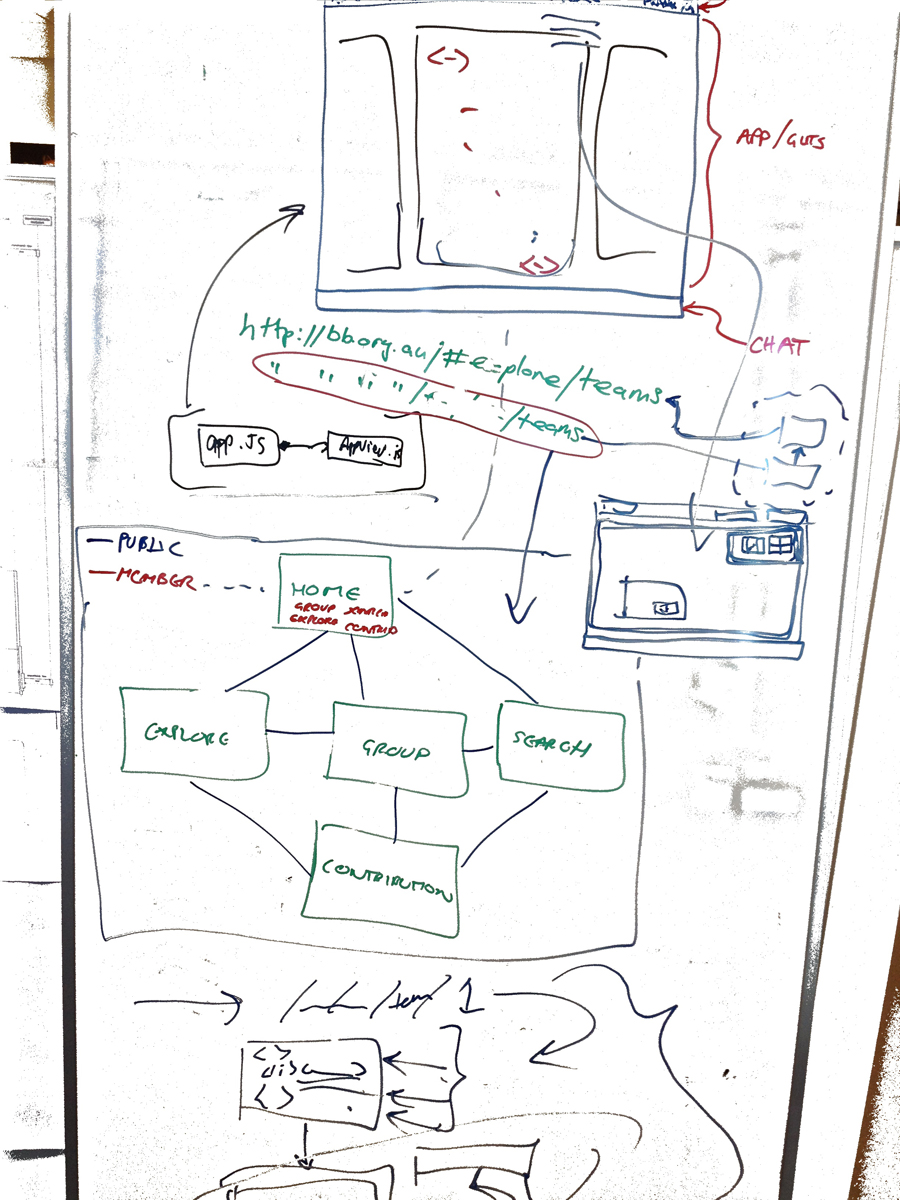 <->
APP/GUTS
<->
CHAT
http://bbory.au/#e-plore/teams
" " " " /teams
app.JS
AppView.js
— PUBLIC
— MEMBER
HOME
GROUP SEARCH
EXPLORE CONTRIB
EXPLORE
GROUP
SEARCH
CONTRIBUTION
1
< >
< >